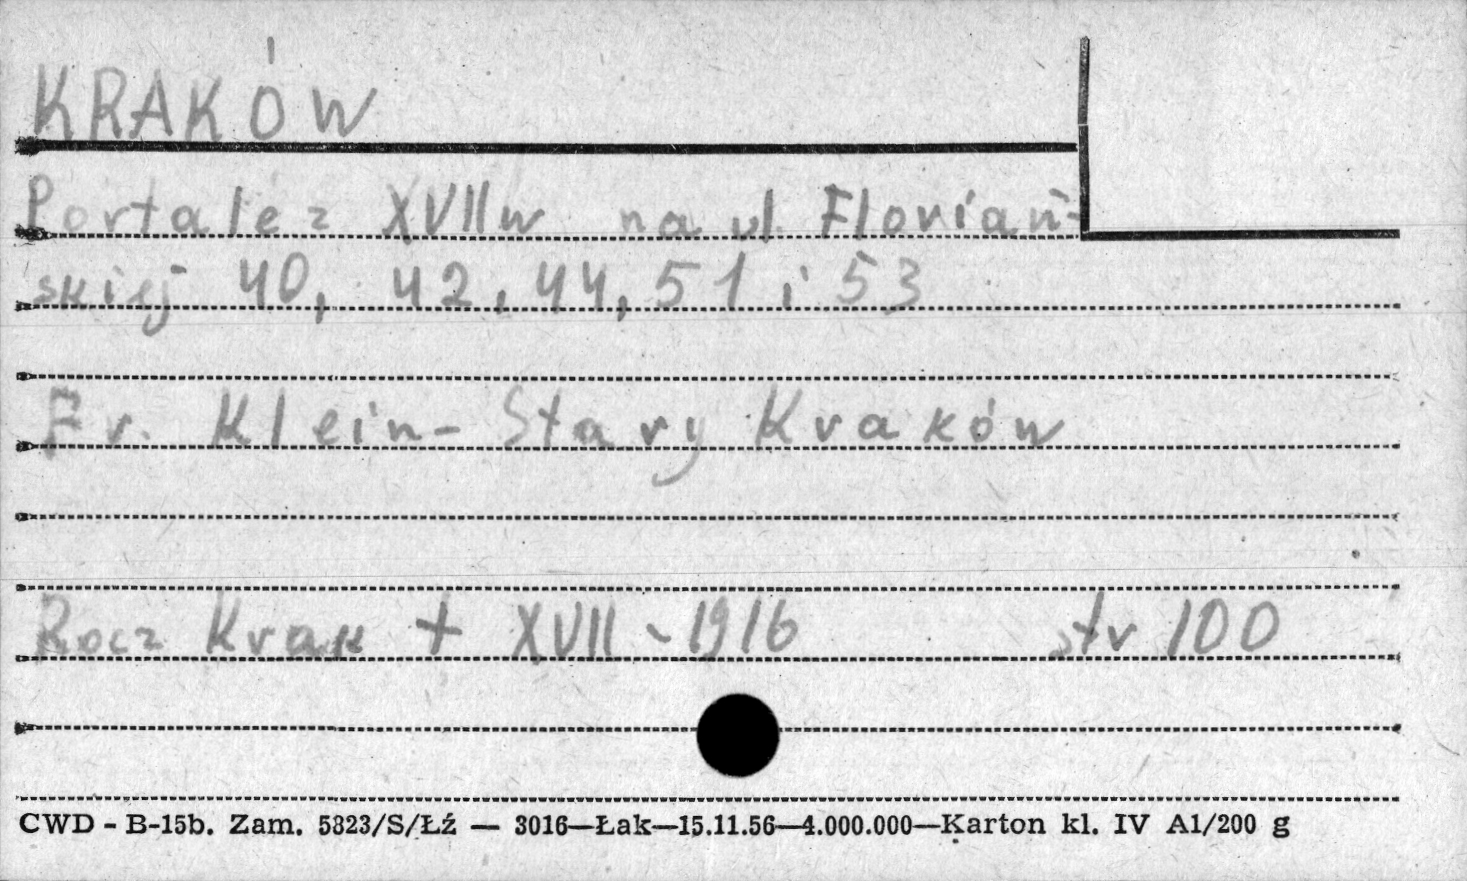 KRAKÓW
Portale z XVII w na ul. Floriań-
skiej 40, 42, 44, 51 i 53
Fr. Klein - Stary Kraków
Rocz Krak t XVII - 1916 str 100
CWD - B-15b. Zam. 5823/S/Łź — 3016—Łak—15.11.56—4.000.000—Karton kl. IV A1/200 g